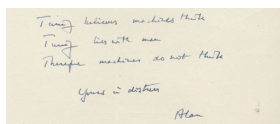 Turing believes machines think
Turing lies with men
Therefore machines do not think
Yours in distress
Alan